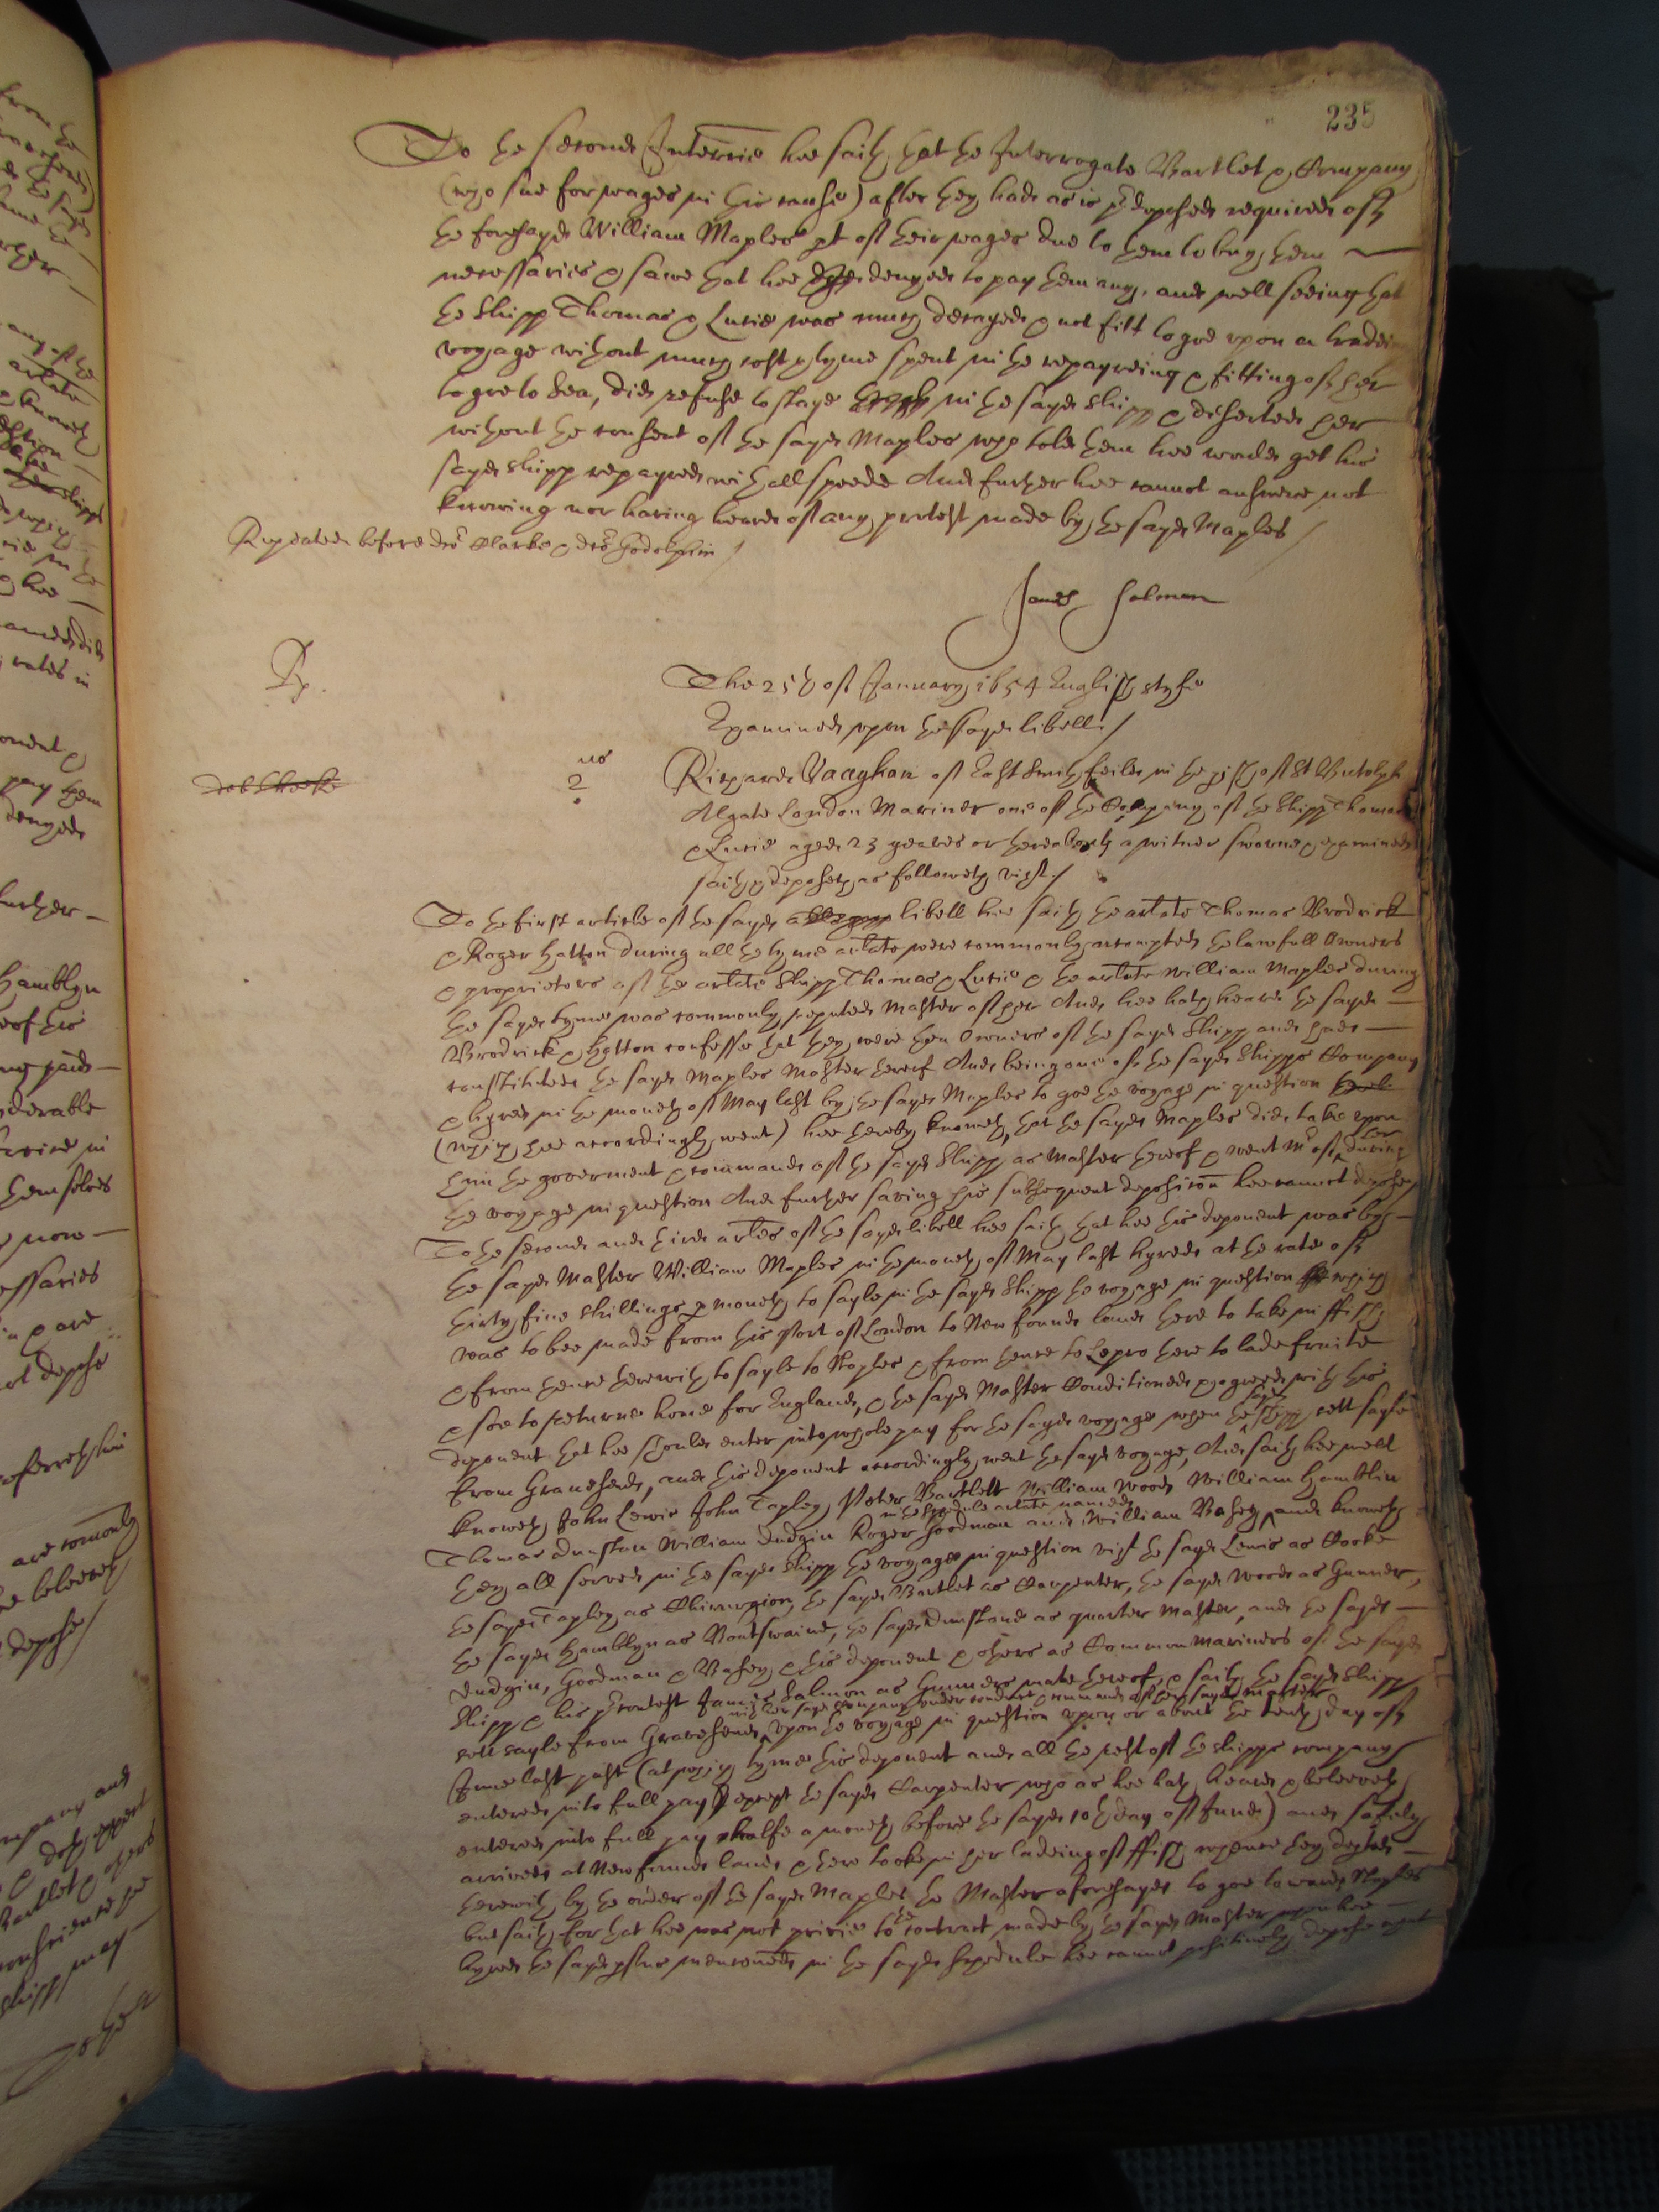 235
To the second Interrie hee saith that the Interrogate Bartlet & Company
(who sue for wages in this cause) after they had as is predeposed required of
the foresayd William Maples pt of their wages due to them to buy them
necessaries & sawe that hee denyed to pay them any, and well seeing that
the Shipp Thomas & Lucie was much decayed & not fitt to goe upon a tradei
voyage without much cost & tyme spent in the repayreing & fitting of her
to goe to Sea, did refuse to staye in the sayd Shipp & deserted her
without the consent of the sayd Maples who told them hee would get his
sayd shipp repayred with all speede And further hee cannot answere not
knowing nor having heard of any protest made by the sayd Maples /
Repeated before dr Clarke & dr Godolphin /
James Salmon
Rp.
The 25th of January 1654 English style
Examined upon the sayd libell /
us
2
Richard Vaughan of East Smithfeild in the pish of St Buttolph
Algate London Mariner one of the Company of the Shipp Thomas
& Lucie aged 23 yeares or thereabouts a witnes sworne & examined
saith & deposeth as followeth vizt /
To the first article of the sayd libell hee saith the arlate Thomas Brodrick
& Roger Hatton during all the tyme arlate were commonly accompted the lawfull Owners
& proprietors of the arlate Shipp Thomas & Lucie & the arlate William Maples during
the sayd tyme was commonly reputed Master of her And hee hath heard the sayd
Brodrick & Hatton confesse that they were then Owners of the sayd Shipp and had
constituted the sayd Maples Master thereof And being one of the sayd Shipps Company
& hyred in the moneth of May last by the sayd Maples to goe the voyage in question
(which hee accordingly went) hee thereby knoweth, that the sayd Maples did take upon
him the goverment & commande of the sayd Shipp as Master thereof & went Mr of her during
the voyage in question And further saving his subsequent deposicon hee cannot depose /
To the second and third arles of the sayd libell hee saith that hee this deponent was by
the sayd Master William Maples in the moneth of May last hyred at the rate of
thirty five shillings p moneth to sayle in the sayd Shipp the voyage in question which
was to bee made from this Port of London to New found land there to take in ffish
& from thence therewith to sayle to Naples & from thence to Zepro there to lade fruite
& soe to returne home for England, & the sayd Master Conditioned & agreed with this
deponent that hee should enter into whole pay for the sayd voyage when the sayd shipp sett sayle
from Gravesend, and this deponent accordingly went the sayd voyage, And saith hee well
knoweth John Lewis John Tapley Peter Bartlett William Wood William Hamblin
Thomas Dunstan William Dudgin Roger Goodman and William Basey in the schedule arlate named and knoweth
they all served in the sayd shipp the voyage in question vizt the sayd Lewis as Cooke
the sayd Tapley as Chirurgion, the sayd Bartlet as Carpenter, the sayd Wood as Gunner,
the sayd Hamblyn as Boatswaine, the sayd Dunstand as quarter Master, and the sayd
Dudgin, Goodman & Basey & this deponent & others as Common Mariners of the sayd
Shipp & his precontest James Salmon as Gunners mate thereof, & saith the sayd Shipp
sett sayle from Gravesend with her sayd company under conduct & command of her sayd master upon the voyage in question upon or about the tenth day of
June last past (at which tyme this deponent and all the rest of the shipps company
entered into full pay except the sayd Carpenter who as hee hath heard & beleeveth
entered into full pay halfe a moneth before the sayd 10th day of June) and safely
arrived at New found land & there tooke in her ladeing of ffish whence they depted
therewith by the order of the sayd Maples the Master aforesayd to goe towards Naples
but saith for that hee was not privie to the contract made by the sayd Master when hee
hyred the sayd psons menconed in the sayd schedule hee cannot positively depose